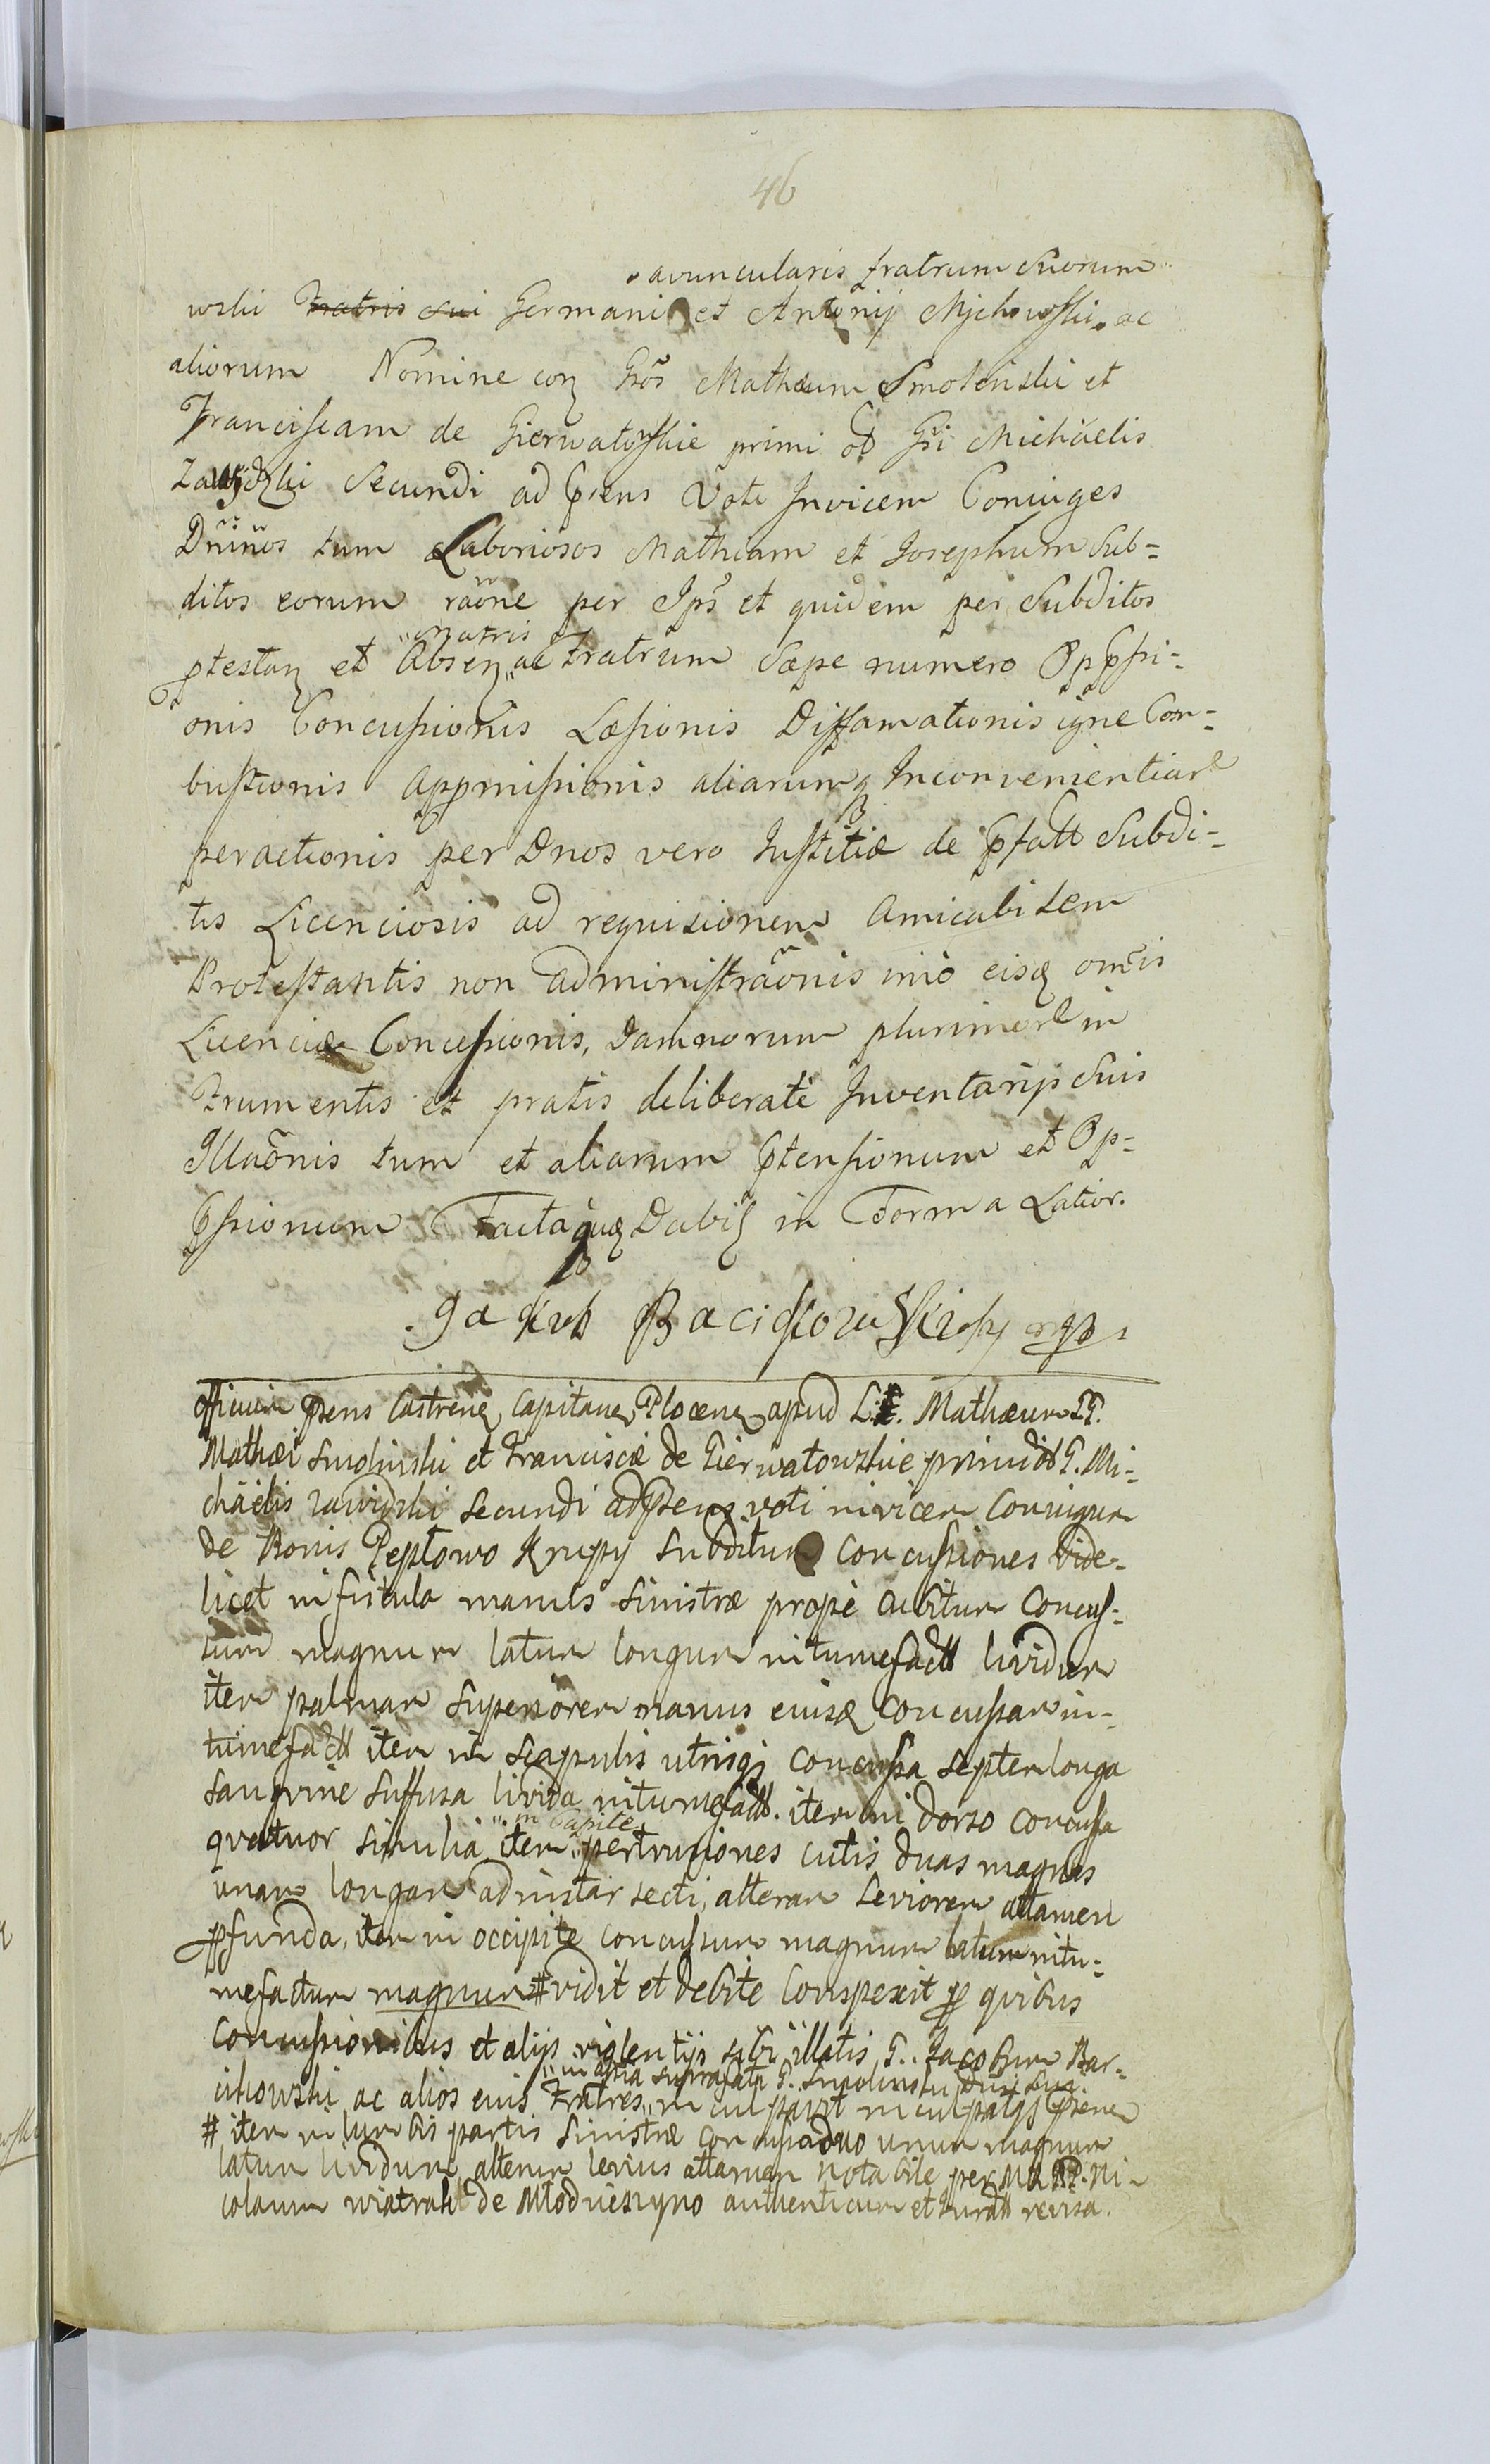 46
"avuncularis fratrum suorum"
wski Fratris sui Germani et Antonij Mjchowski ac
aliorum Nomine con Gsos Mathæum Smolenski et
Franciscam de Gierwatowskie primi ad Gsi Michäelis
Zawidzki Secundi ad pñens Voti Invicem Coniuges
Dnınos tum Laboriosos Mathiam et Josephum Sub=
ditos eorum raõne per Ips et quidem per Subditos
"matris
ptestan et Absen ac Fratrum Sæpe numero Oppssi=
onis Concussionis Læsionis Diffamationis igne Com=
bustionis Appromissionis aliarumq Inconvenientiar
peractionis per Dnos vero Iustitiæ de pfatt Subdi=
tis Licenciosis ad requisionem Amicabilem
Protestantis non administraõnis imo eisd omĩs
Licenciæ Concessionis, Damnorum plurimor in
Frumentis et pratis deliberatè Inventarijs Suis
Illaõnis tum et aliarum ptensionum et Op=
pssionum Factaque Dabit in Forma Latior.
Jakub Bacikowski mp
Officium pñens Castrene Capitane Plocene apud L. Mathæum GG.
Mathæi Smolinski et Franciscæ de Gierwatowskie primi ad G. Mi=
chäelis Zawidzki Secundi ad pñens voti invicem Coniugum
de Bonis Peptowo Krupy Subditum concussiones vide=
licet in fistula manus Sinistræ propè cubitum Concus=
sum magnum latum longum intumefactt lividum
item palmam Superiorem manus eiusd concussam in=
tumefactt item in Scapulis utrisq concussa Septem longa
Sangvine Suffusa livida intumefactt. item in dorso concussa
"in Capite
qvatuor Similia item pertrusiones cutis duas magnas
unam longam ad instar secti, alteram Leviorem attamen
pfunda, item in occipite concussum magnum latum intu=
mefactum magnum # vidit et debite Conspexit p qvibus
Concussionibus et alijs violentijs sibi illatis G. Jacobum Bar=
"in asstia suprafati G. Smolinski Dni sui
cikowski ac alios eius Fratres inculpavit inculpatq pñene
# item in lumbis partis Sinistræ concussa duo unum magnum
latum lividum, alterum levius attamen notabile per MD PP. Ni=
colaum Wiatrak de Mlodnieszyno authenticum et Juratt revisa.